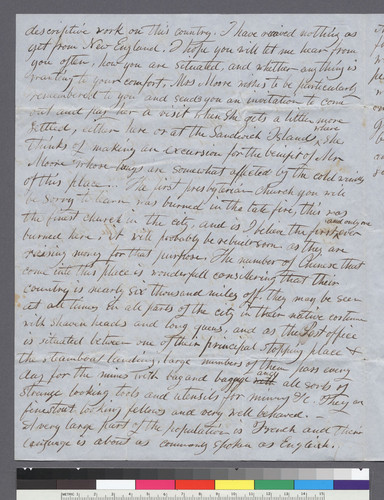 descriptive work on this country. I have received nothing as
yet from New England. I hope you will let me hear from
you often, how you are situated, and whether anything is
wanting to your comfort, Mrs Moore wishes to be particularly
remembered to you and sends you an invitation to come
out and pay her a visit when she gets a little more
settled, either here or at the Sandwich Islands where she
thinks of making an excursion for the benefit of Mr
Moore whose lungs are somewhat affected by the cold winds
of this place. The first presbyterian Church you will
be sorry to learn was burned in the late fire, this was
the finest church in the city, and is I believe the first and only one ever
burned here. it will probably be rebuilt soon as they are
raising money for that purpose. The number of Chinese that
come into this place is wonderfull considering that their
country is nearly six thousand miles off. they may be seen
at all times in all parts of the city in their native costume
with shaven heads and long queus, and as the Post office
is situated between one of their principal stopping place &
the steamboat landing, large numbers of them pass every
day for the mines with bag and baggage and all sorts of
strange looking tools and utensils for mining &c. They are
fine stout looking fellows and very well behaved. –
A very large part of the population is French and their
language is about as commonly spoken as English.